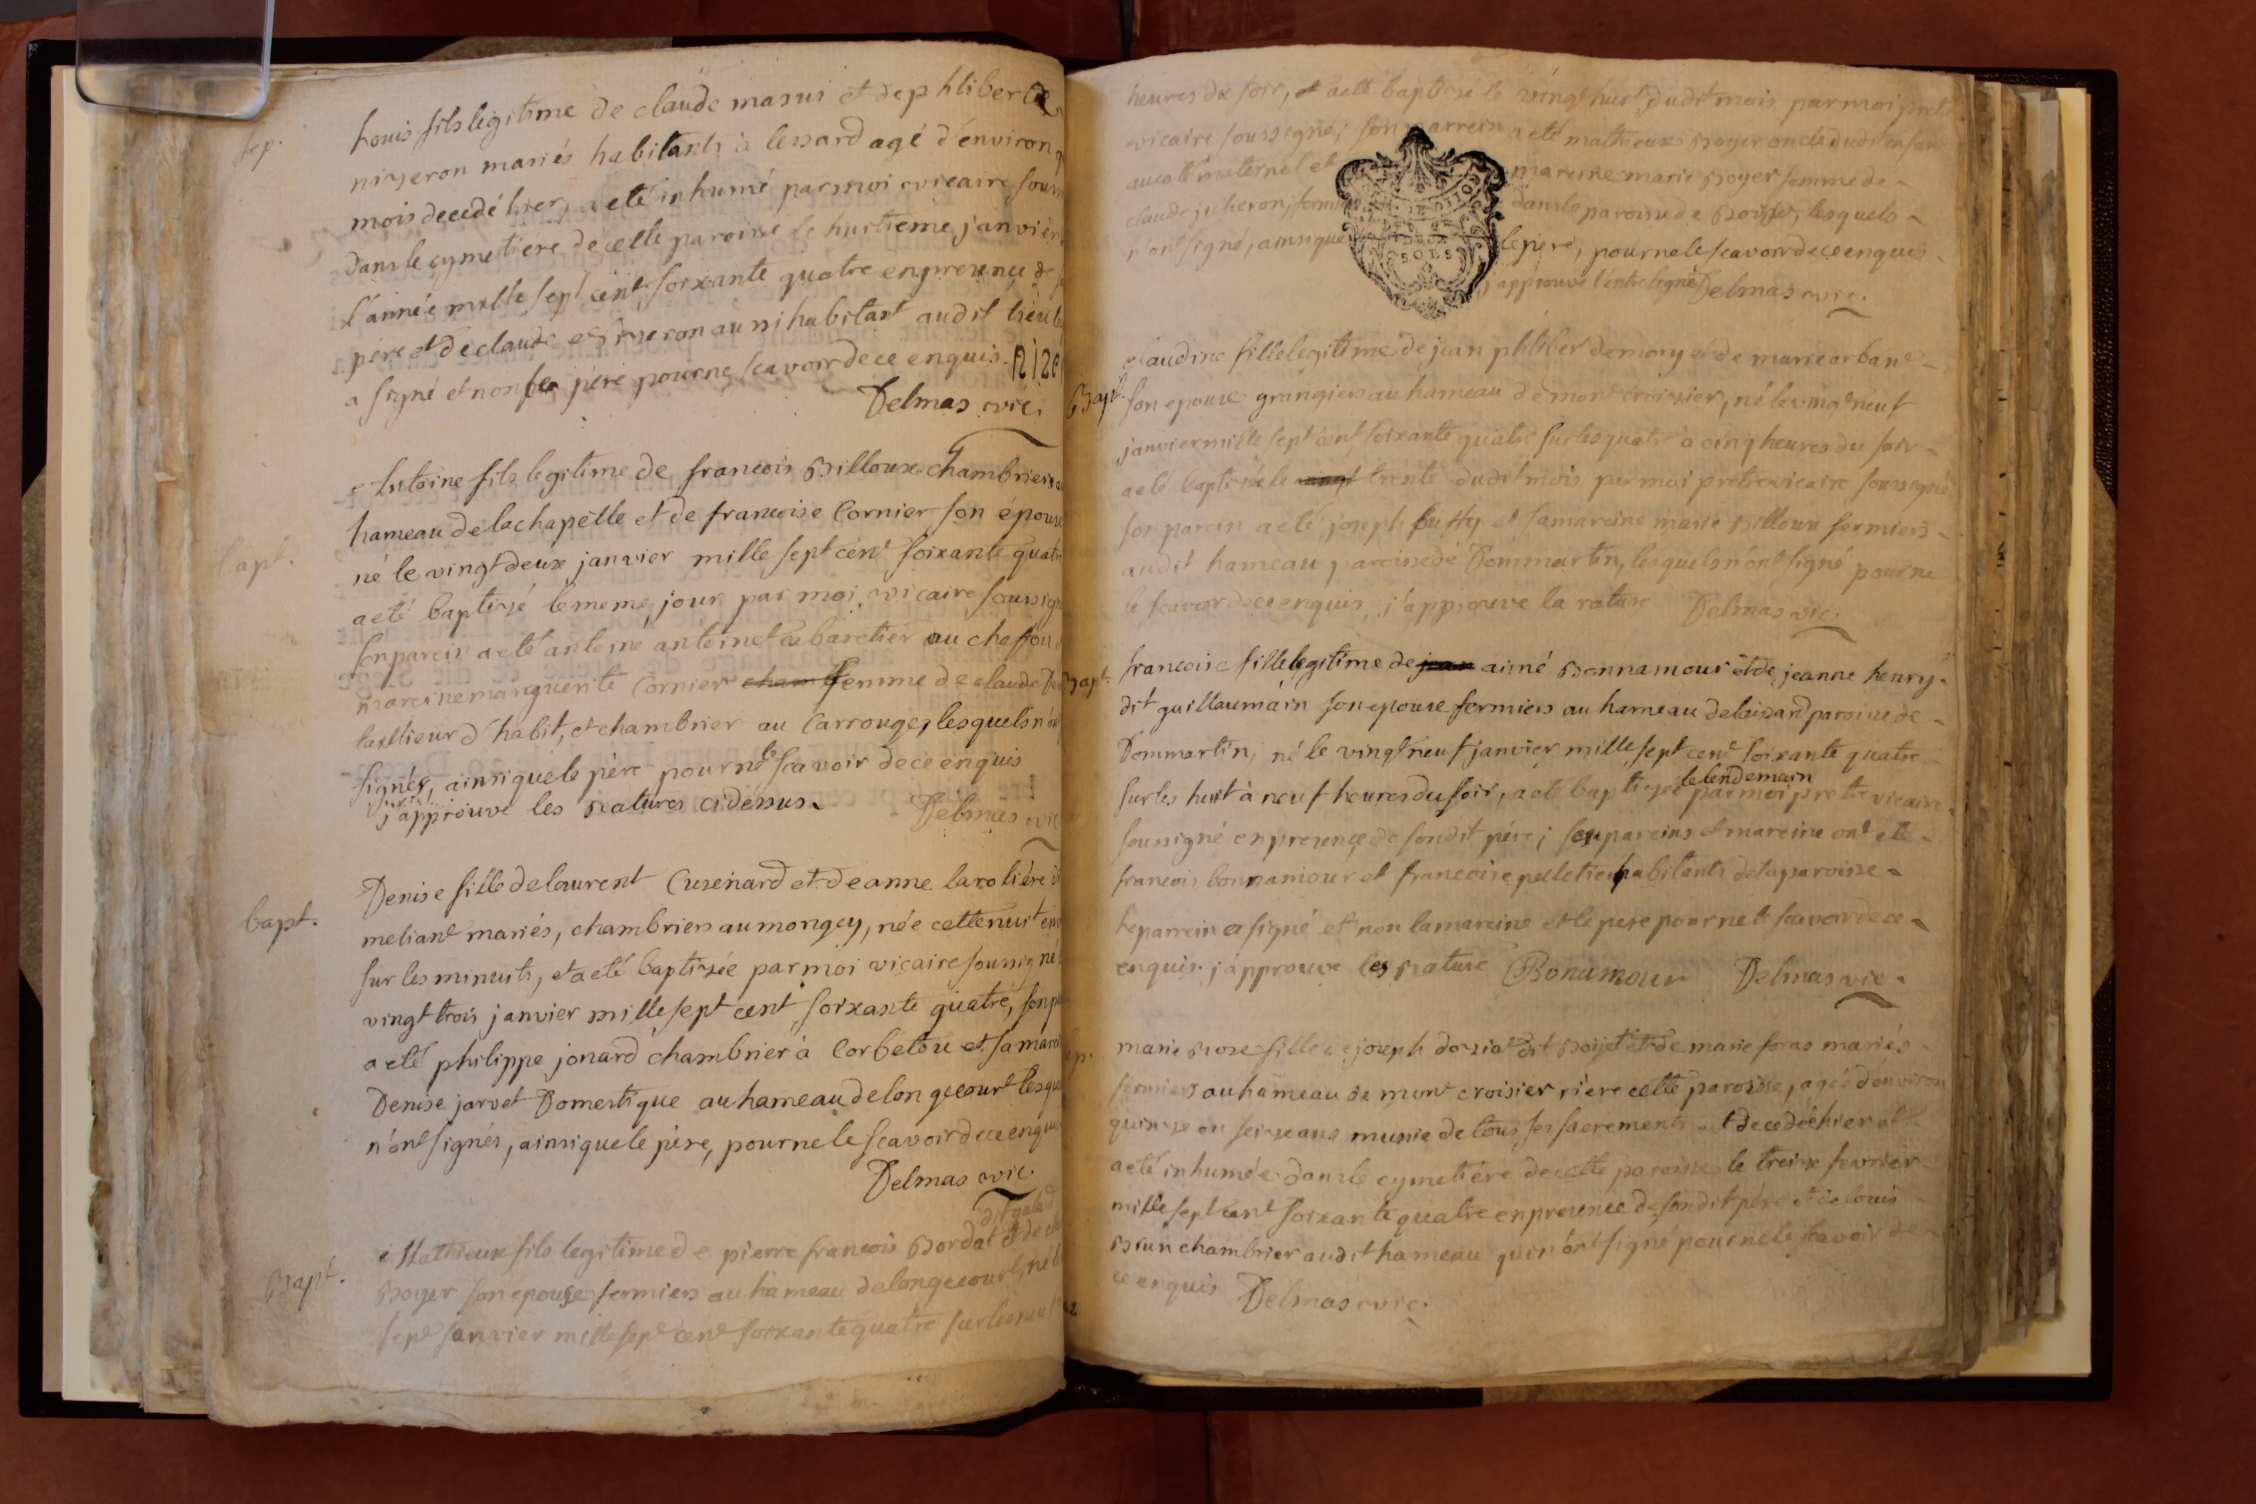 sep.
Louis fils legitime de claude masui et de philiberte
nizeron mariés habitants à lessard agé d'environ
mois decedé hier, a eté inhumé par moi vicaire
dans le cymetiere de cette paroisse le huitieme janvier
l'année mille sept cent soixante quatre en presence de
père et de claude niseron aussi habitant audit lieu
a signé et non le père pour ne scavoir de ce enquis. nize
Delmas vic.
bapt.
Antoine fils legitime de francois Billoux chambrier
hameau de la chapelle et de francoise Cornier son épouse
né le vingt deux janvier mille sept cent soixante quatre
a eté baptizé le meme jour par moi vicaire
son parein a eté antoine antoinet cabaretier au chaffou
mareine marguerite Cornier cham femme de claude
taillieur d'habit, et chambrier au Carrouge, lesquels n'ont
signés, ainsi que le père pour ne le scavoir de ce enquis
j'approuve les ratures cidessus. Delmas vic
bapt.
Denise fille de laurent Cusenard et de anne larolière
meliant mariés, chambriers au mongey, née cette nuit
sur les minuits, et a eté baptizée par moi vicaire soussigné
vingt trois janvier mille sept cent soixante quatre, son
a eté philippe jonard chambrier à Corbetou et sa
Denise jarvet Domestique au hameau de longecourt
n'ont signés, ainsi que le père, pour ne le scavoir de ce
Delmas vic.
Bapt.
Mathieux fils legitime de pierre francois Bordat et de
Boyer son epouse fermiers au hameau de longecourt, né
sept janvier mille sept cent soixante quatre sur les neuf
heures du soir, et a eté baptizé le vingt huit dudit mois par moi
vicaire soussigné; son parrein a eté mathieux Boyer oncle dudit enfant
du coté maternel et mareine marie Boyer femme de
claude julieron, dans la paroisse de lesquels
n'ont signé, ainsi que le père, pour ne le scavoir de ce enquis
SOLS
approuvé l'entreligne Delmas vic.
Bapt.
claudine fille legitime de jean philiber demony et de marie arbant
son epouse grangiers au hameau de mont croisier, né le vingt neuf
janvier mille sept cent soixante quatre sur les quatre a cinq heures du soir
a eté baptizé le vingt trente dudit mois par moi pretre vicaire soussigné
son parein a eté joseph buffy et sa mareine marie Billoux fermiers
audit hameau paroisse de Dommartin, lesquels n'ont signé pour ne
le scavoir de ce enquis, j'approuve la rature Delmas vic.
Bapt.
francoise fille legitime de jean aimé Bonnamour et de jeanne henry
dit guillaumain son epouse fermiers au hameau de paroisse de
Dommartin, né le vingt neuf janvier mille sept cent soixante quatre
sur les huit à neuf heures du soir, a eté baptizée le lendemain par moi pretre vicaire
soussigné en presence de son dit père; son pareins et mareine ont eté
francois bonnamour et francoise pelletier habitants de la paroisse
le parrein a signé et non la mareine et le pere pour ne le scavoir de ce
enquis. j'approuve les rature Bonamour Delmas vic.
marie Rose fille de joseph doriat dit Boyet et de marie foras mariés
fermiers au hameau de mont croisier riere cette paroisse, agée d'environ
quinze ou seize ans munie de tous ses sacrements est decedée hier et
a eté inhumée dans le cymetière de cette paroisse le treize fevrier
mille sept cent soixante quatre en presence de son dit père et de louis
Brun chambrier audit hameau qui n'ont signé pour ne le scavoir de
ce enquis Delmas vic.